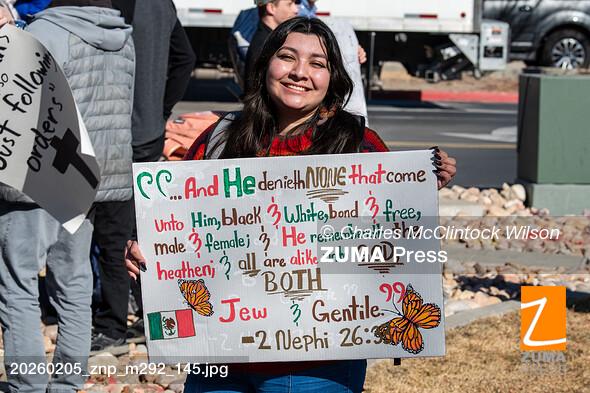 "...And He denieth NONE that come
Unto Him, black & White, bond & free,
male & female; & He remembereth
heathen; & all are alike
BOTH
Jew & Gentile."
-2 Nephi 26:3
Just following
orders"
© Charles McClintock Wilson
ZUMA Press
Z
ZUMA
20260205_znp_m292_145.jpg